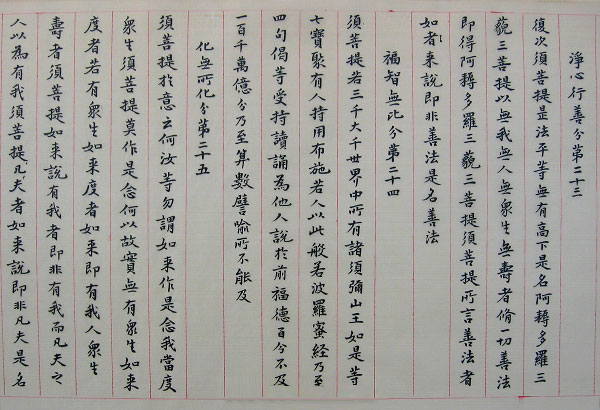 淨心行善分第二十三
復次須菩提是法平等無有高下是名阿耨多羅三
藐三菩提以無我無人無眾生無壽者脩一切善法
即得阿耨多羅三藐三菩提須菩提所言善法者
如來說即非善法是名善法
福智無比分第二十四
須菩提若三千大千世界中所有諸須彌山王如是等
七寶聚有人持用布施若人以此般若波羅蜜經乃至
四句偈等受持讀誦為他人說於前福德百分不及
一百千萬億分乃至算數譬喻所不能及
化無所化分第二十五
須菩提於意云何汝等勿謂如來作是念我當度
眾生須菩提莫作是念何以故實無有眾生如來
度者若有眾生如來度者如來即有我人眾生
壽者須菩提如來說有我者即非有我而凡夫之
人以為有我須菩提凡夫者如來說即非凡夫是名